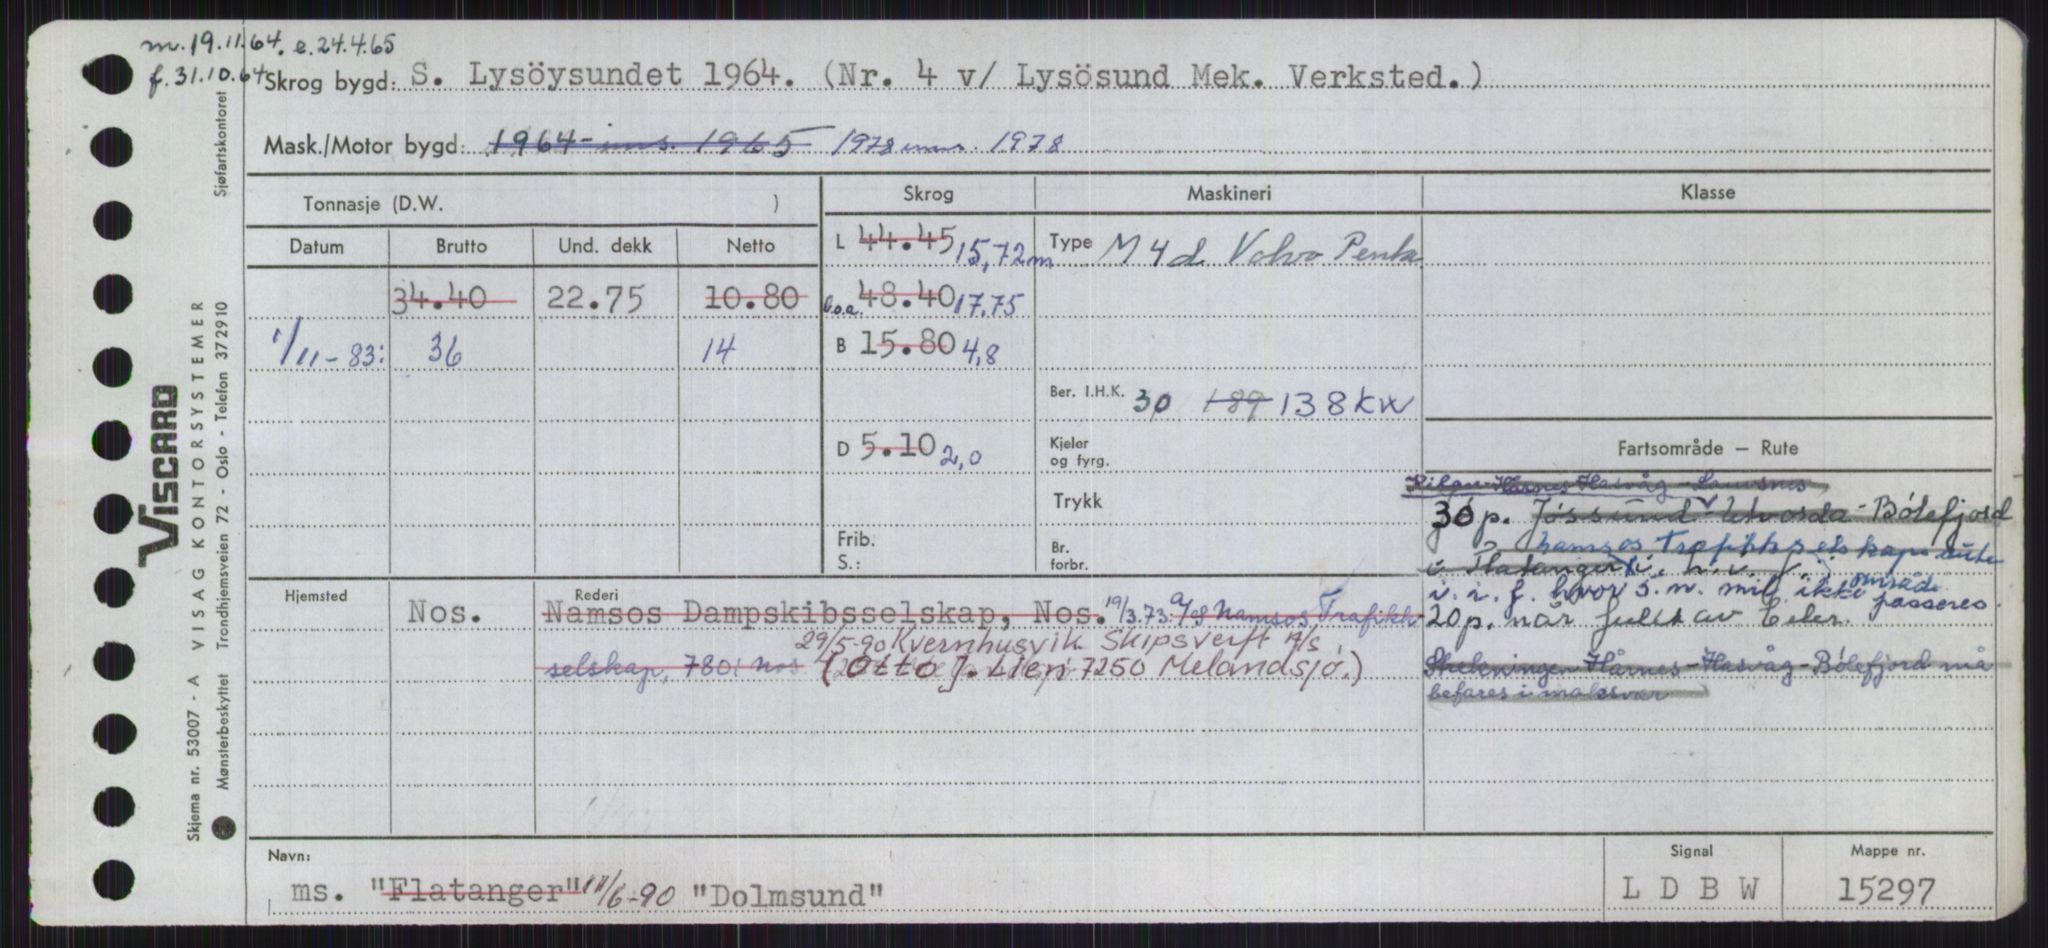 m. 19.11.64. e. 24.4.65
f. 31.10.64
Skrog bygd: S. Lysöysundet 1964. (Nr. 4 v/ Lysösund Mek. Verksted.)
Mask./Motor bygd: 1964 - ins. 1965 1978 inns. 1978
Tonnasje (D.W. )
Skrog
Maskineri
Klasse
Datum
Brutto
Und. dekk
Netto
L 44.45 15,72 m
Type M 4 d. Volvo Penta
34.40
22.75
10.80
l.o.a. 48.40 17.75
1/11-83:
36
14
B 15.80 4,8
Ber. I.H.K. 30 189 138 kW
D 5.10 2,0
Kjeler
og fyrg.
Trykk
Frib.
S.:
Br.
forbr.
Fartsområde — Rute
Hårnes Hasvåg - Lauvsnes
30 p. Jøssund - Utvorda - Bølefjord
Namsos Trafikkselskaps rute
i Flatanger
i. r. f. hvor s. m. mil ikke passeres.
område
20 p. når fullt av biler.
Strekningen Hårnes - Hasvåg - Bølefjord må
befares i maksvær
Hjemsted
Nos.
Rederi
Namsos Dampskibsselskap, Nos. 19/3.73: A/S Namsos Trafikk-
selskap, 7801 Nos
29/5-90 Kvernhusvik Skipsverft A/S
(Otto J. Lien, 7250 Melandsjø.)
Navn:
ms. "Flatanger" 11/6-90 "Dolmsund"
Signal
L D B W
Mappe nr.
15297
VISCARD
Skjema nr. 53007 - A VISAG KONTORSYSTEMER
Mønsterbeskyttet Trondhjemsveien 72 - Oslo - Telefon 37 29 10
Sjøfartskontoret